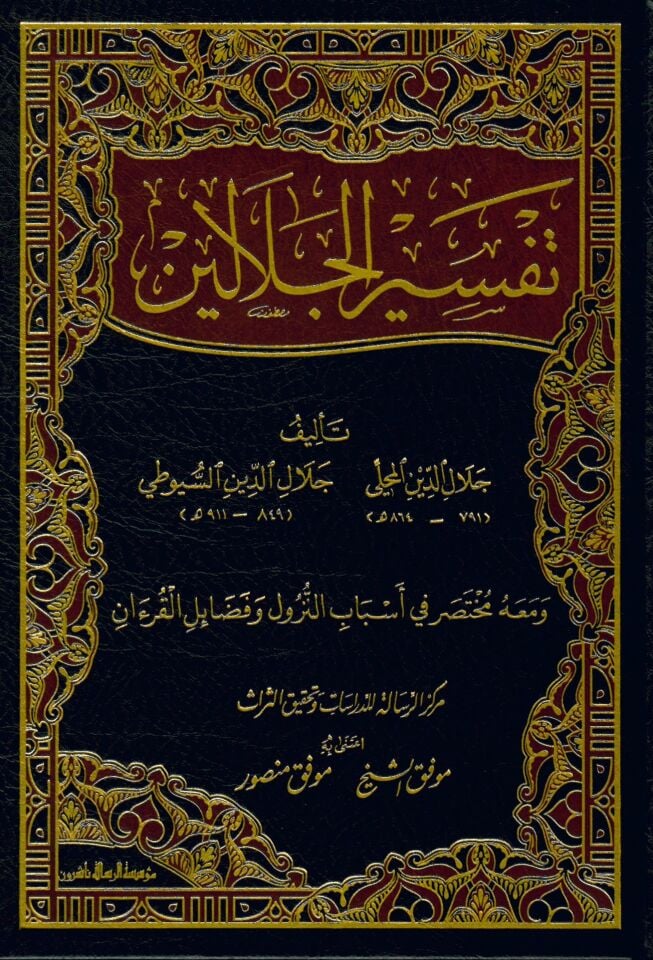 تفسير الجلالين
تأليف
جلال الدين المحلي جلال الدين السيوطي
(٧٩١ - ٨٦٤ه) (٨٤٩ - ٩١١ه)
ومعه مختصر في أسباب النزول وفضائل القرءان
مركز الرسالة للدراسات وتحقيق التراث
اعتنى به
موفق الشيخ موفق منصور
مؤسسة الرسالة ناشرون